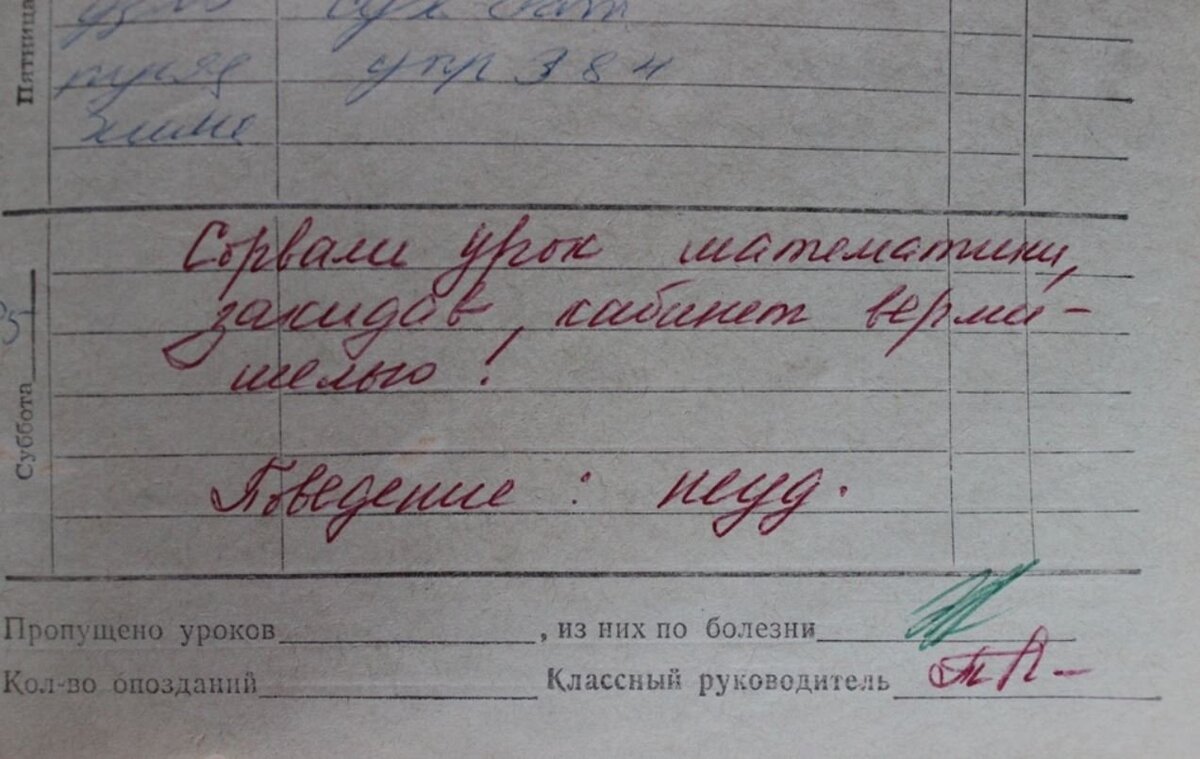 Пятница
рус яз упр 384
химия
Сорвали урок математики,
закидав, кабинет верми-
шелью!
Суббота
Поведение: неуд.
Пропущено уроков , из них по болезни
Кол-во опозданий Классный руководитель